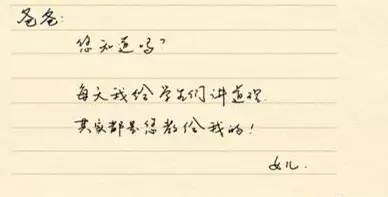 爸爸:
您知道吗?
每天我给学生们讲道理.
其实都是您教给我的!
女儿.